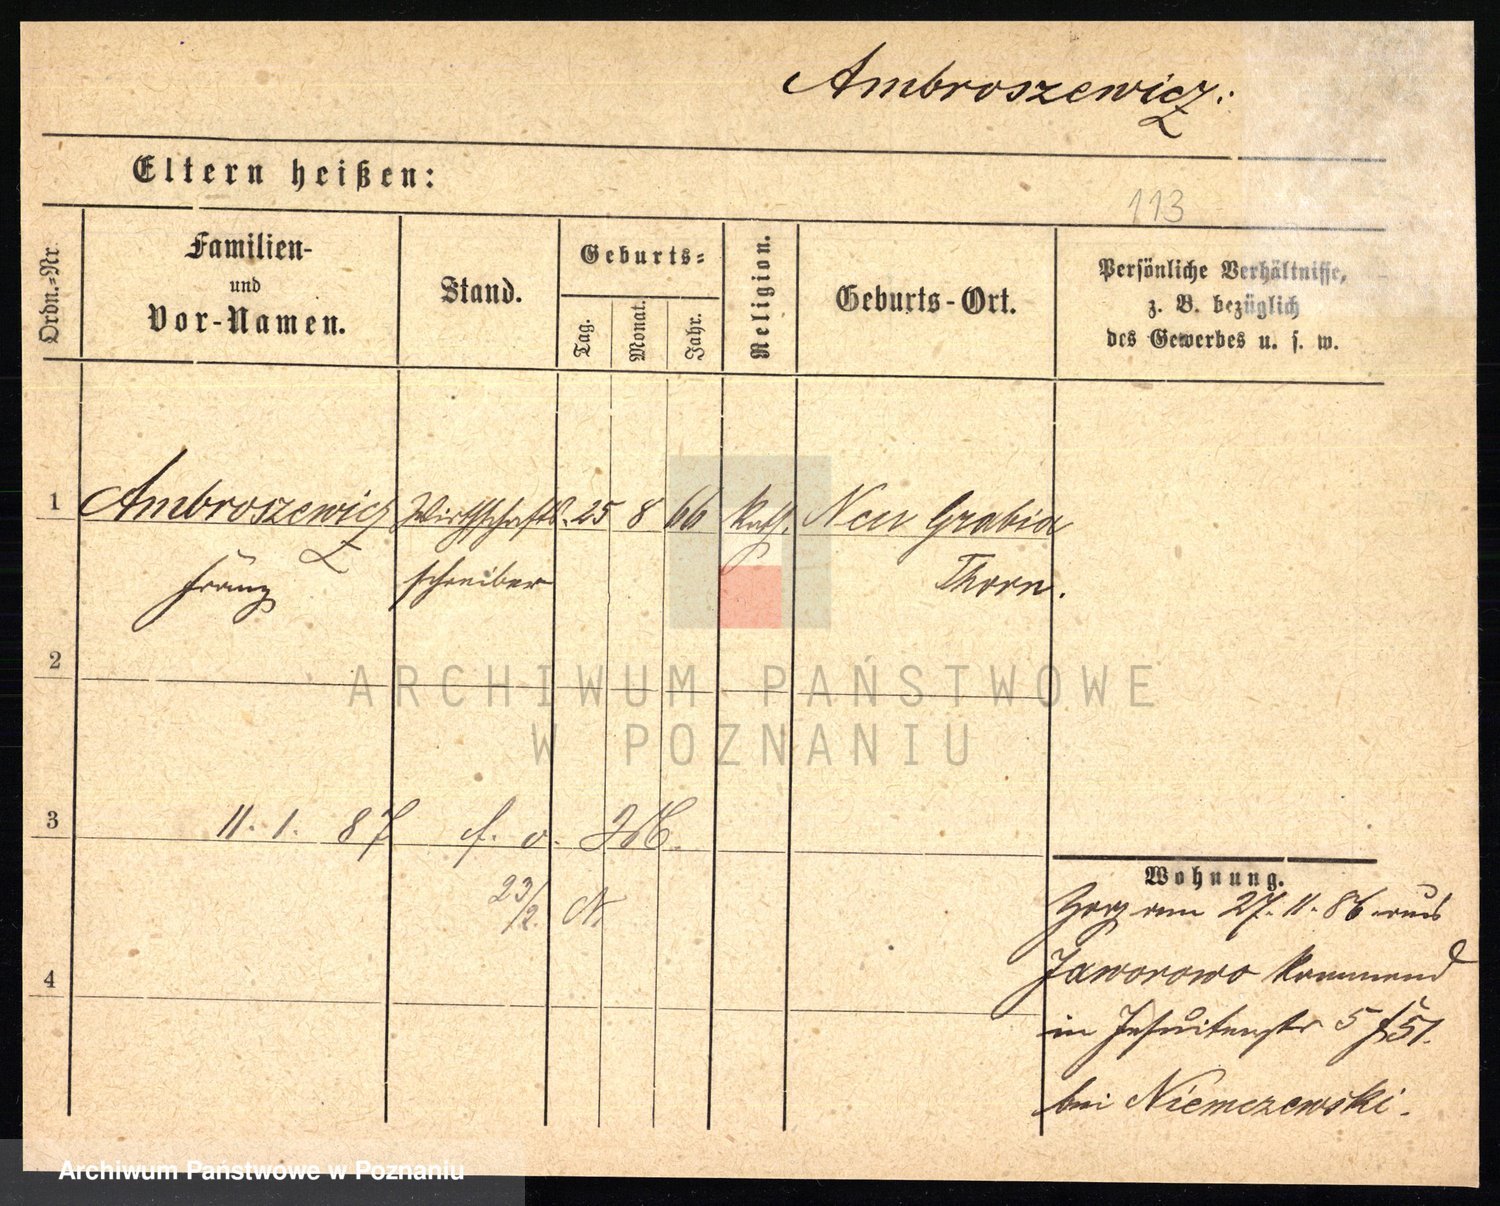 Ambroszewicz.
Eltern heißen:
113
Ordn.-Nr.
Familien-
und
Vor-Namen.
Stand.
Geburts-
Tag.
Monat.
Jahr.
Religion.
Geburts-Ort.
Persönliche Verhältnisse,
z. B. bezüglich
des Gewerbes u. s. w.
1 Ambroszewicz Wirthschafts- 25 8 66 kath. Neu Grabia
Franz schreiber Thorn.
2
ARCHIWUM PAŃSTWOWE
W POZNANIU
3 11. 1. 87 f. v.
23/2.
Wohnung.
Zog am 27. 11. 86 aus
4 Jaworowo kommend
in Jesuitenstr 5
bei Niemczewski.
Archiwum Państwowe w Poznaniu